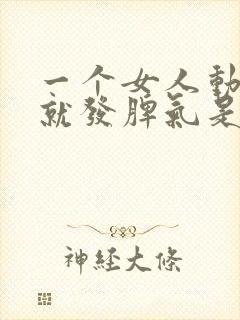 一个女人動
就發脾氣是
神經大條